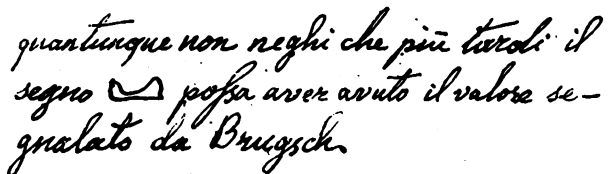 quantunque non neghi che più tardi il
segno possa aver avuto il valore se-
gnalato da Brugsch